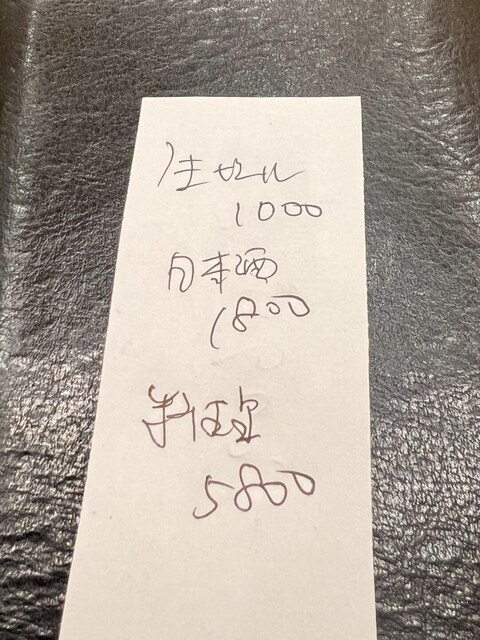 生ビール
1000
日本酒
1800
料理
5800